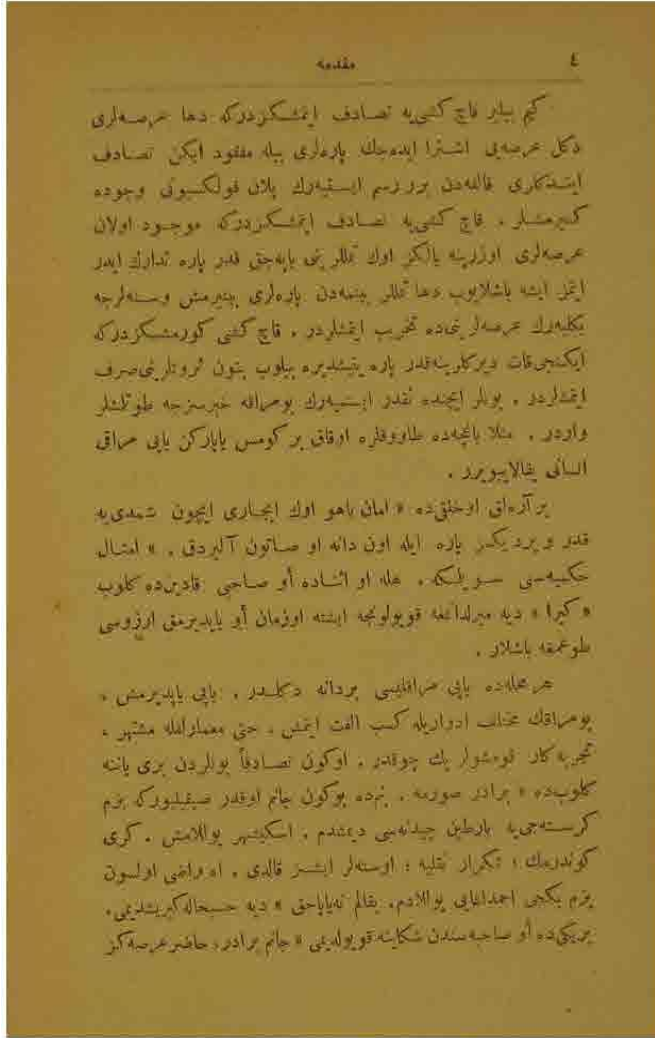 ٤ مقدمه
كيم بيلير قاچ كشى‌يه تصادف ايتمشكزدركه دها عرصه‌لرى
دكل عرصه‌يى اشترا ايده‌جك پاره‌لرى بيله مفقود ايكن تصادف
ايتدكلرى قالفه‌دن برر رسم ايسته‌يه‌رك پلان قولكسيونى وجوده
كتيرمشلر . قاچ كشى‌يه تصادف ايتمشكزدركه موجود اولان
عرصه‌لرى اوزرينه يالكز اوك تمللرينى ياپه‌جق قدر پاره تدارك ايدر
ايتمز ايشه باشلايوب دها تمللر بيتمه‌دن پاره‌لرى بيتيرمش وسنه‌لرجه
بكليه‌رك عرصه‌لرينى‌ده تخريب ايتمشلردر . قاچ كشى كورمشكزدركه
ايكنجى‌قات ديركلرينه‌قدر پاره يتيشديره بيلوب بتون ثروتلرينى‌صرف
ايتمشلردر . بونلر ايچنده نقدر ايسته‌ميه‌رك بومراقه خبرسزجه طوتلمشلر
واردر . مثلا باغچه‌ده طاووقلره اوفاق بر كومس ياپاركن ياپى مراقى
انسانى ياقالايويرر .
بر آره‌لق اوخلق‌ده « امان ياهو اوك ايجارى ايچون شمدى‌يه
قدر ويرديكمز پاره ايله اون دانه او صاتون آليردق . » امثال
حكميه‌سى سويلنكه . هله او اثناده أو صاحبى قاديزده كلوب
« كيرا » ديه ميرلدانمغه قويولونجه ايشته اوزمان أو ياپديرمق آرزوسى
طوغمغه باشلار .
هر محله‌ده ياپى مراقليسى بردانه دكلدر . ياپى ياپديرمش ،
بومراقك مختلف ادواريله كسب الفت ايتمش ، حتى معمارلغله مشتهر ،
تجربه‌كار قومشولر پك چوقدر . اوكون تصادفاً بونلردن برى ياننه
كلوب‌ده « برادر صورمه . بم‌ده بوكون جانم اوقدر صيقيليوركه بزم
كرسته‌جى‌يه بارطين چيدنه‌سى ديمشدم . اسكيشهر يوللامش . كرى
كوندرمك ؛ تكرار نقليه ؛ اوسته‌لر ايشسز قالدى . اه راضى اولسون
بزم بكجى احمداغايى يوللادم. باقالم نه‌ياپاجق » ديه حسبحاله‌كيريشديمى.
بريكى‌ده أو صاحبه‌سندن شكايته قويولديمى « جانم برادر، حاضر عرصه‌كز